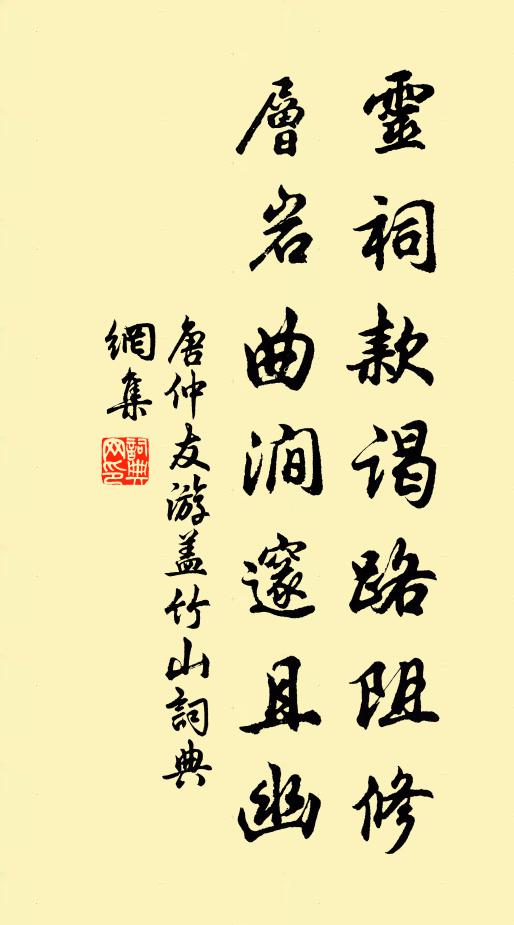 靈祠款謁路阻修
層岩曲澗邃且幽
唐仲友游蓋竹山詞典
網集
詞典
网印